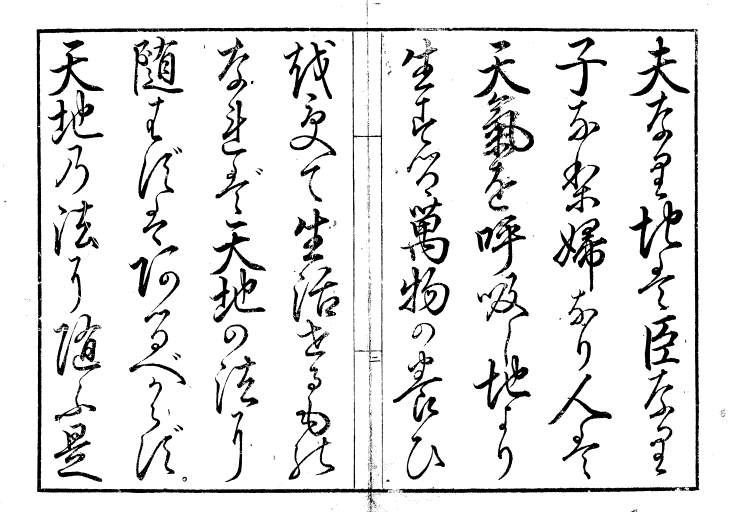 夫なり地は臣なり
子なり婦なり人は
天氣を呼吸し地より
生する萬物の養ひ
を受て生活するもの
なれば天地の法に
随はずばあるべからず。
天地の法に随ふ是